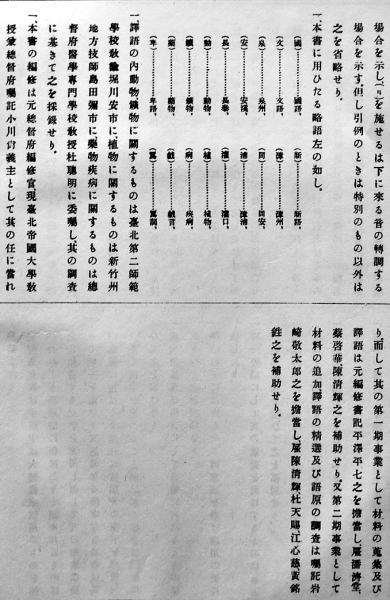 場合を示し、(ﾆ)を施せるは下に來る音の轉調する
場合を示す。但し引例のときは特別のもの以外は
之を省略せり。
一、本書に用ひたる略語左の如し。
(國)…………國語。
(文)…………文語。
(泉)…………泉州。
(安)…………安溪。
(長)…………長泰。
(動)…………動物。
(礦)…………礦物。
(藥)…………藥物。
(卑)…………卑語。
(新)…………新語。
(漳)…………漳州。
(同)…………同安。
(浦)…………漳浦。
(灌)…………灌口。
(植)…………植物。
(病)…………疾病。
(戲)…………戲言。
(罵)…………罵詞。
一、譯語の內動物鑛物に關するものは臺北第二師範
學校敎諭堀川安市に、植物に關するものは新竹州
地方技師島田彌市に、藥物疾病に關するものは總
督府醫學專門學校敎授杜聰明に委囑し、其の調査
に基きて之を採錄せり。
一、本書の編修は元總督府編修官現臺北帝國大學敎
授兼總督府囑託小川尙義主として其の任に當れ
り。而して其の第一期事業として材料の蒐集及び
譯語は元編修書記平澤平七之を擔當し、雇潘濟堂、
蔡啓華、陳清輝之を補助せり。又第二期事業として
材料の追加、譯語の精選及び語原の調査は囑託岩
崎敬太郎之を擔當し、雇陳清輝、杜天賜、江心慈、黃銘
鉎之を補助せり。